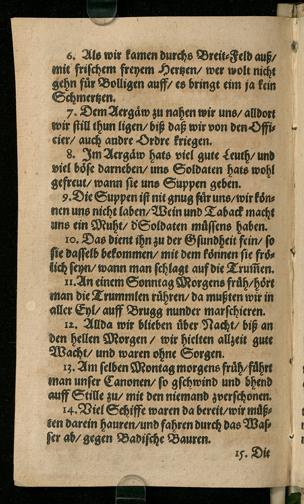 6. Als wir kamen durchs Breit-Feld auß/
mit frischem freyem Hertzen/ wer wolt nicht
gehn für Bolligen auff/ es bringt eim ja kein
Schmertzen.
7. Dem Aergäw zu nahen wir uns/ alldort
wir still thun ligen/ biß daß wir von den Offi-
cier/ auch andre Ordre kriegen.
8. Im Aergäw hats viel gute Leuth/ und
viel böse darneben/ uns Soldaten hats wohl
gefreut/ wann sie uns Suppen geben.
9. Die Suppen ist nit gnug für uns/ wir kön-
nen uns nicht laben/ Wein und Taback macht
uns ein Muht/ d'Soldaten müssens haben.
10. Das dient ihn zu der Gsundheit fein/ so
sie dasselb bekommen/ mit dem können sie frö-
lich seyn/ wann man schlagt auf die Trum̄en.
11. An einem Sonntag Morgens früh/ hört
man die Trummlen rühren/ da mußten wir in
aller Eyl/ auff Brugg nunder marschieren.
12. Allda wir blieben über Nacht/ biß an
den hellen Morgen/ wir hielten allzeit gute
Wacht/ und waren ohne Sorgen.
13. Am selben Montag morgens früh/ führt
man unser Canonen/ so gschwind und bhend
auff Stille zu/ mit den niemand zverschonen.
14. Viel Schiffe waren da bereit/ wir müß-
ten darein hauren/ und fahren durch das Was-
ser ab/ gegen Badische Bauren.
15. Die